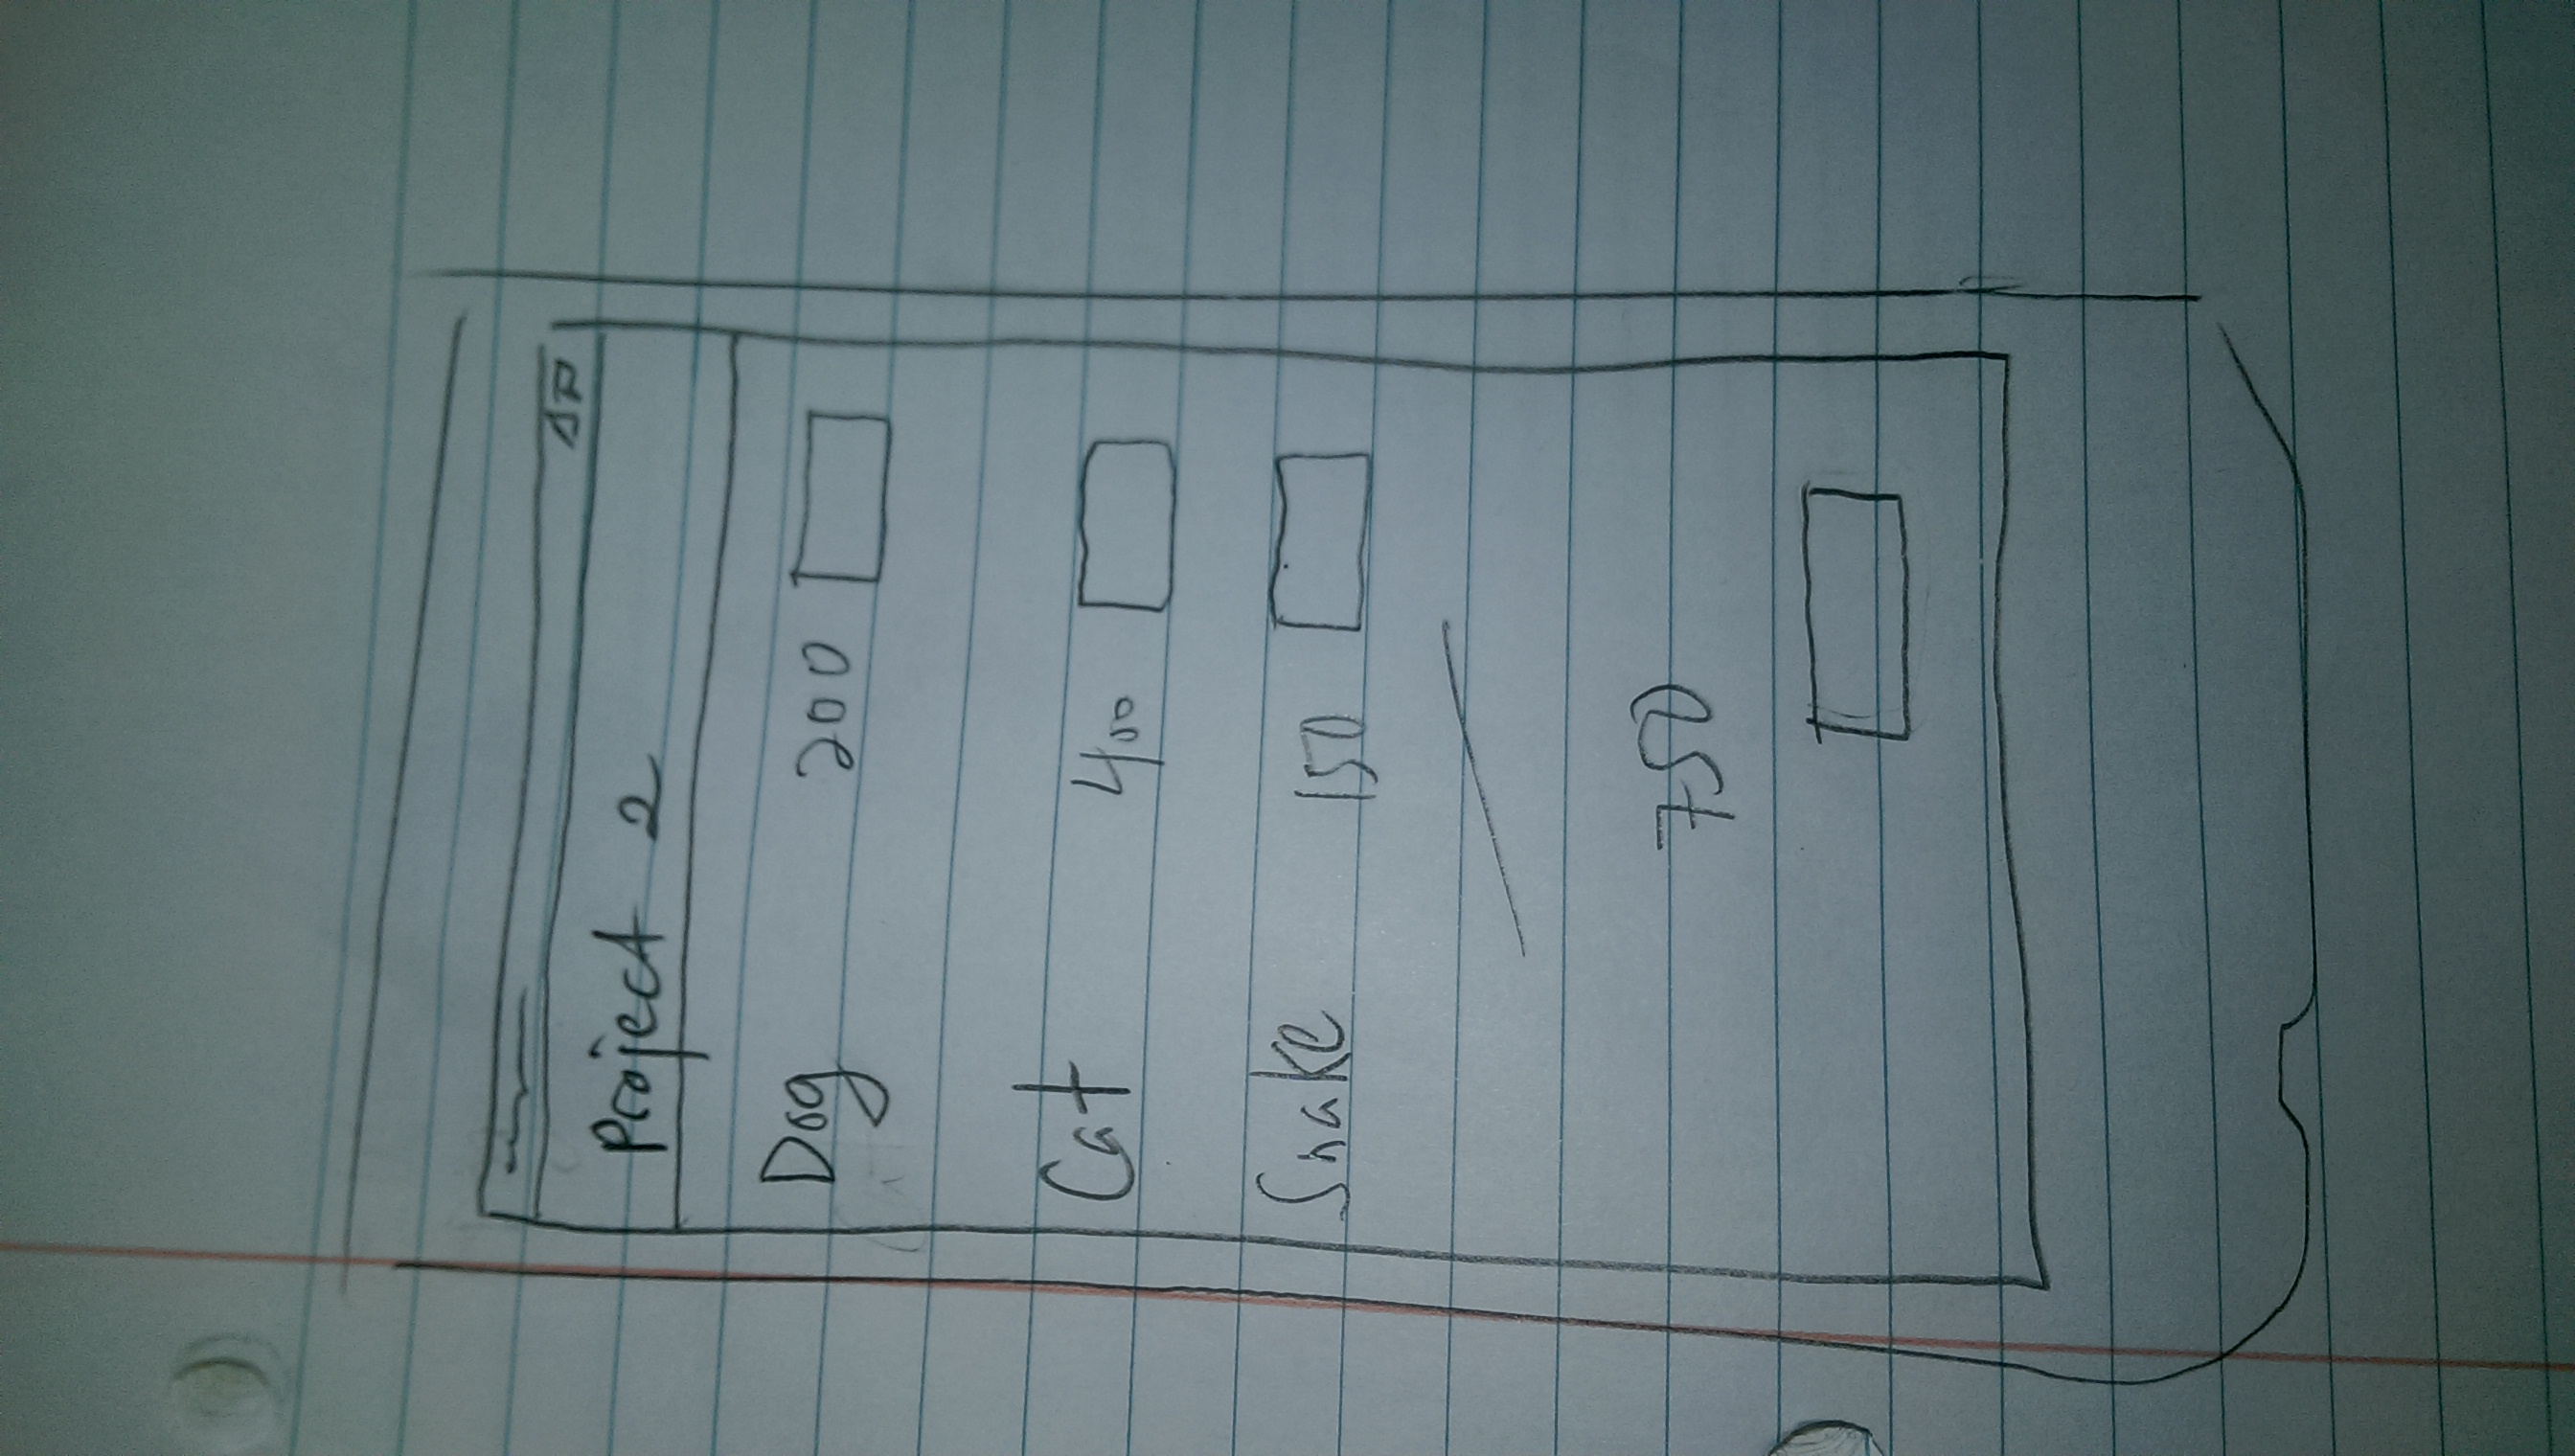 Project 2
Dog 200
Cat 400
Snake 150
750